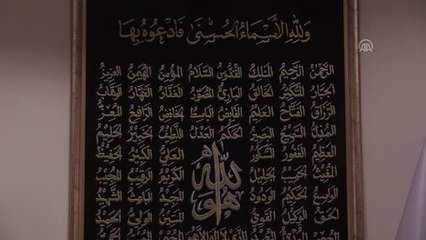 وَلِلّٰهِ الْأَسْمَاءُ الْحُسْنٰى فَادْعُوهُ بِهَا
الرحمن الرحيم الملك القدوس السلام المؤمن المهيمن العزيز
الجبار المتكبر الخالق البارئ المصور الغفار القهار الوهاب
الرزاق الفتاح العليم القابض الباسط الخافض الرافع المعز
المذل السميع البصير الحكم العدل اللطيف الخبير الحليم
العظيم الغفور الشكور العلي الكبير الحفيظ
المقيت الحسيب الجليل
الواسع الحكيم الودود المجيد الباعث الشهيد
الحق الوكيل القوي المتين الولي الحميد
هو الله
AA